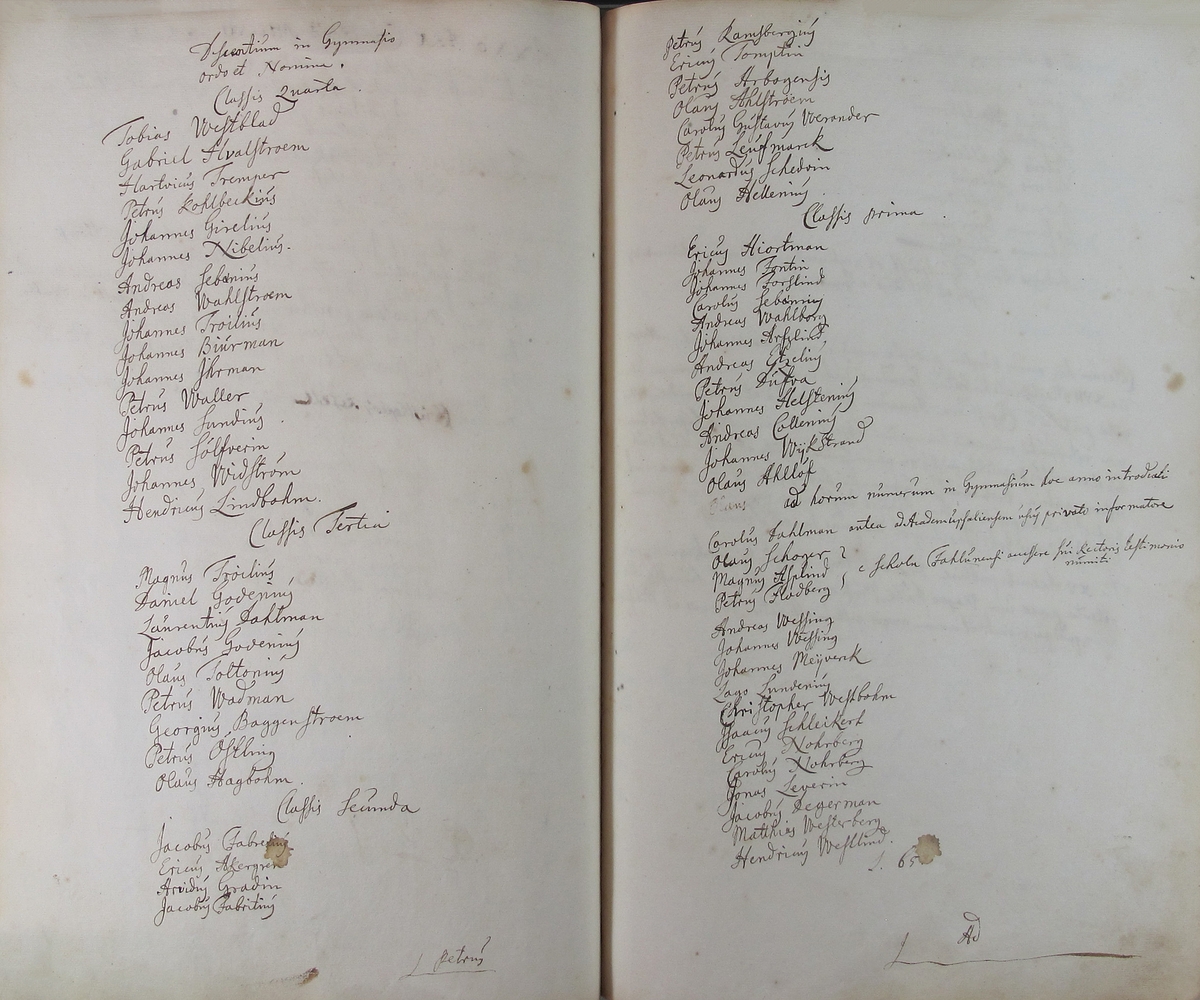 Discentium in Gymnasio
ordo et Nomina.
Classis Quarta.
Tobias Westblad
Gabriel Hvalstroem
Hartvicus Tremper
Petrus Kohlbeckius
Johannes Girelius
Johannes Nibelius.
Andreas Sebenius
Andreas Wahlstroem
Johannes Troilius
Johannes Biurman
Johannes Ihrman
Petrus Waller
Johannes Sundius.
Petrus Solfverin
Johannes Widström
Hendricus Lindbohm.
Classis Tertia
Magnus Troilius
Daniel Godenius
Laurentius Dahlman
Jacobus Godenius
Olaus Toltonius
Petrus Wadman
Georgius Baggenstroem
Petrus Östling
Olaus Hagbohm.
Classis Secunda
Jacobus
Ericus Akergren
Arvidus Gradin
Jacobus Fabritius
Petrus
Petrus Ramsbergius
Ericus Tomptin
Petrus Arbogensis
Olaus Ahlstroem
Carolus Gustavus Werander
Petrus Leufmarck
Leonardus Schedvin
Olaus Hellenius.
Classis prima.
Ericus Hiortman
Johannes Fontin
Johannes Forslind
Carolus Sebenius
Andreas Wahlborg
Johannes
Andreas Etzelius
Petrus Dufva
Johannes Helstenius
Andreas Collenius
Johannes Wijkstrand
Olaus Ahllöf
ad horum numerum in Gymnasium hoc anno introducti
Carolus Dahlman antea ad Academ: Upsaliensem usus privato informatore
Olaus Schoger
Magnus Asplind
Petrus Flodberg
e Schola Fahlunensi accessere sui Rectoris testimonio
muniti
Andreas Wessing
Johannes Wessing
Johannes Meijverck
Lago Lundenius
Christopher Westbohm
Isaacus Schleikert
Ericus Nohrberg
Carolus Nohrberg
Jonas Severin
Jacobus Degerman
Matthias Westerberg
Hendricus Westlind.
S. 65
Ad